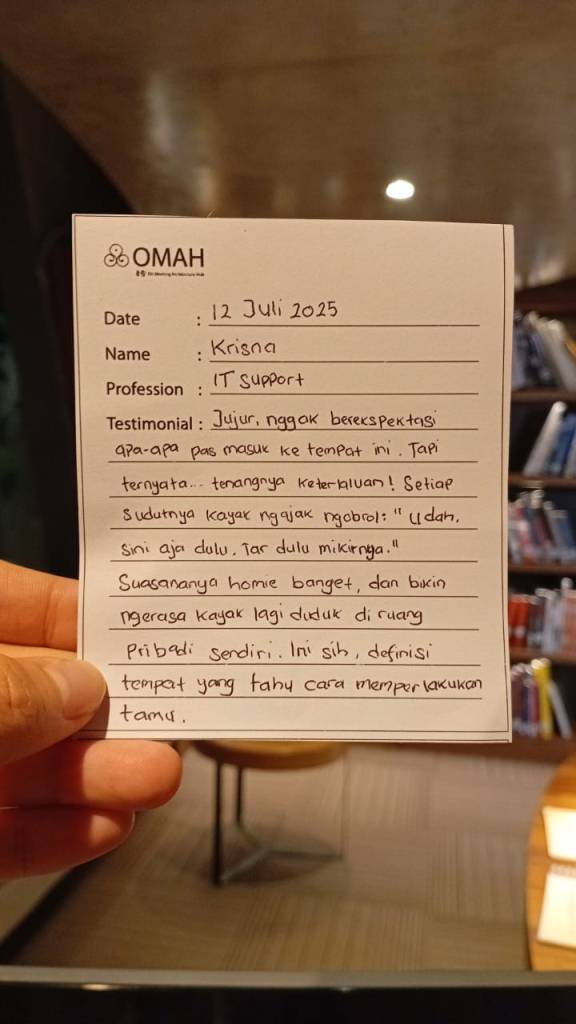 OMAH
Date : 12 Juli 2025
Name : Krisna
Profession : IT Support
Testimonial : Jujur, nggak berekspektasi
apa-apa pas masuk ke tempat ini. Tapi
ternyata... tenangnya keterlaluan! Setiap
sudutnya kayak ngajak ngobrol: "Udah,
sini aja dulu. Tar dulu mikirnya."
Suasananya homie banget, dan bikin
ngerasa kayak lagi duduk di ruang
pribadi sendiri. Ini sih, definisi
tempat yang tahu cara memperlakukan
tamu.